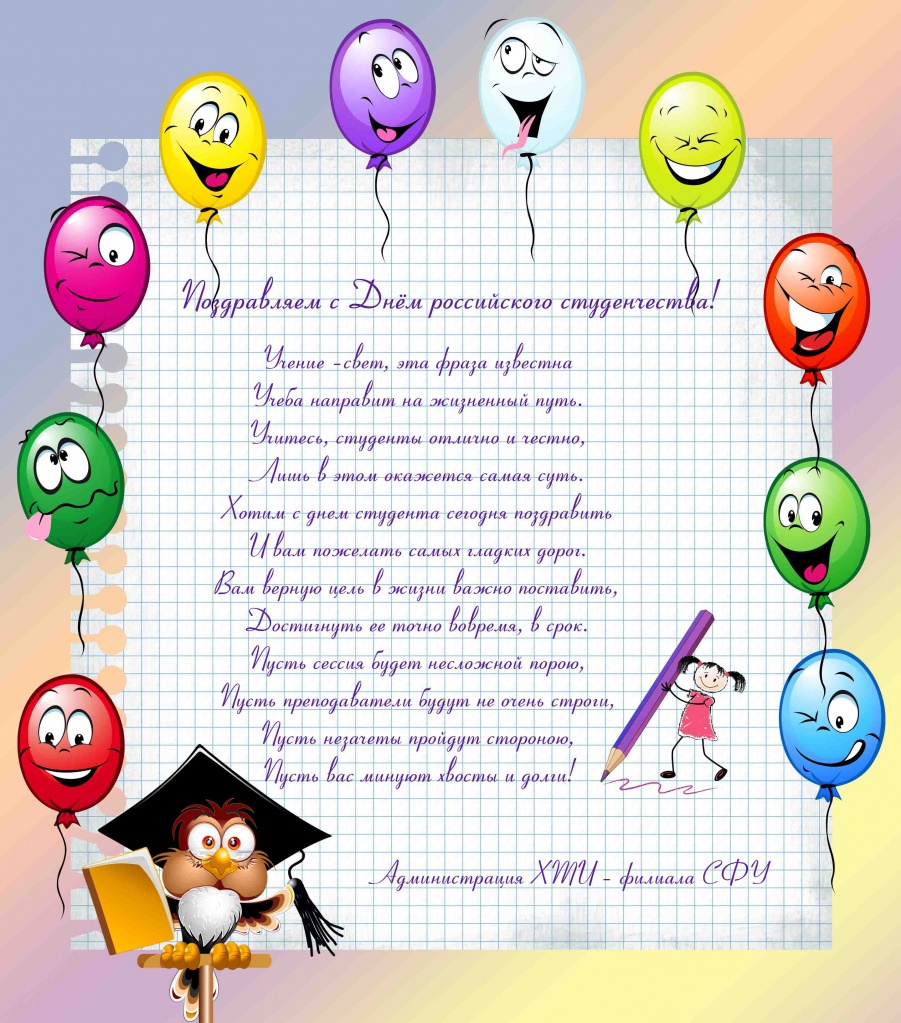 Поздравляем с Днём российского студенчества!
Учение -свет, эта фраза известна
Учеба направит на жизненный путь.
Учитесь, студенты отлично и честно,
Лишь в этом окажется самая суть.
Хотим с днем студента сегодня поздравить
И вам пожелать самых гладких дорог.
Вам верную цель в жизни важно поставить,
Достигнуть ее точно вовремя, в срок.
Пусть сессия будет несложной порою,
Пусть преподаватели будут не очень строги,
Пусть незачеты пройдут стороною,
Пусть вас минуют хвосты и долги!
Администрация ХТИ - филиала СФУ